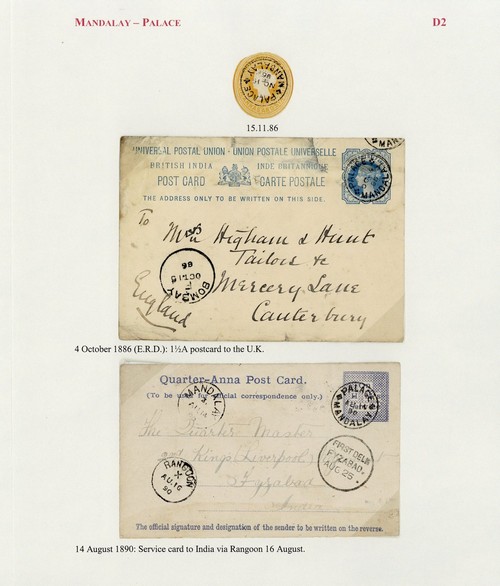 MANDALAY – PALACE
D2
PALACE
MANDALAY
15.11.86
UNIVERSAL POSTAL UNION · UNION POSTALE UNIVERSELLE
BRITISH INDIA INDE BRITANNIQUE
POST CARD CARTE POSTALE
THE ADDRESS ONLY TO BE WRITTEN ON THIS SIDE.
MANDALAY
To
Higham & Hunt
Tailors &c
Mercery Lane
Canterbury
England
BOMBAY
OC 18
86
4 October 1886 (E.R.D.): 1½A postcard to the U.K.
Quarter-Anna Post Card.
(To be used for official correspondence only.)
MANDALAY
PALACE
MANDALAY
The Quarter Master
Kings Liverpool
Fyzabad
India
RANGOON
X
AU 16
90
FIRST DELIV
FYZABAD
AUG 25
The official signature and designation of the sender to be written on the reverse.
14 August 1890: Service card to India via Rangoon 16 August.